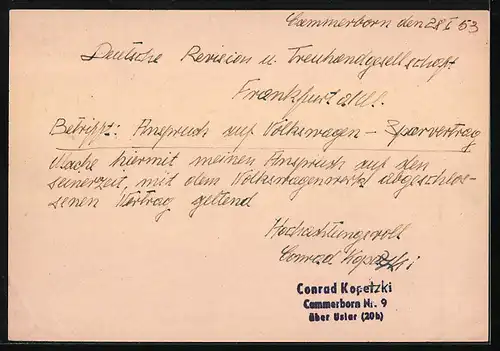 Cammerborn den 28 I 53
Deutsche Revision u. Treuhandgesellschaft
Frankfurt a/M.
Betrifft: Anspruch auf Volkswagen – Sparvertrag
Mache hiermit meinen Anspruch auf den
seinerzeit, mit dem Volkswagenwerk abgeschlos-
senen Vertrag geltend
Hochachtungsvoll
Conrad Kopetzki
Conrad Kopetzki
Cammerborn Nr. 9
über Uslar (20b)